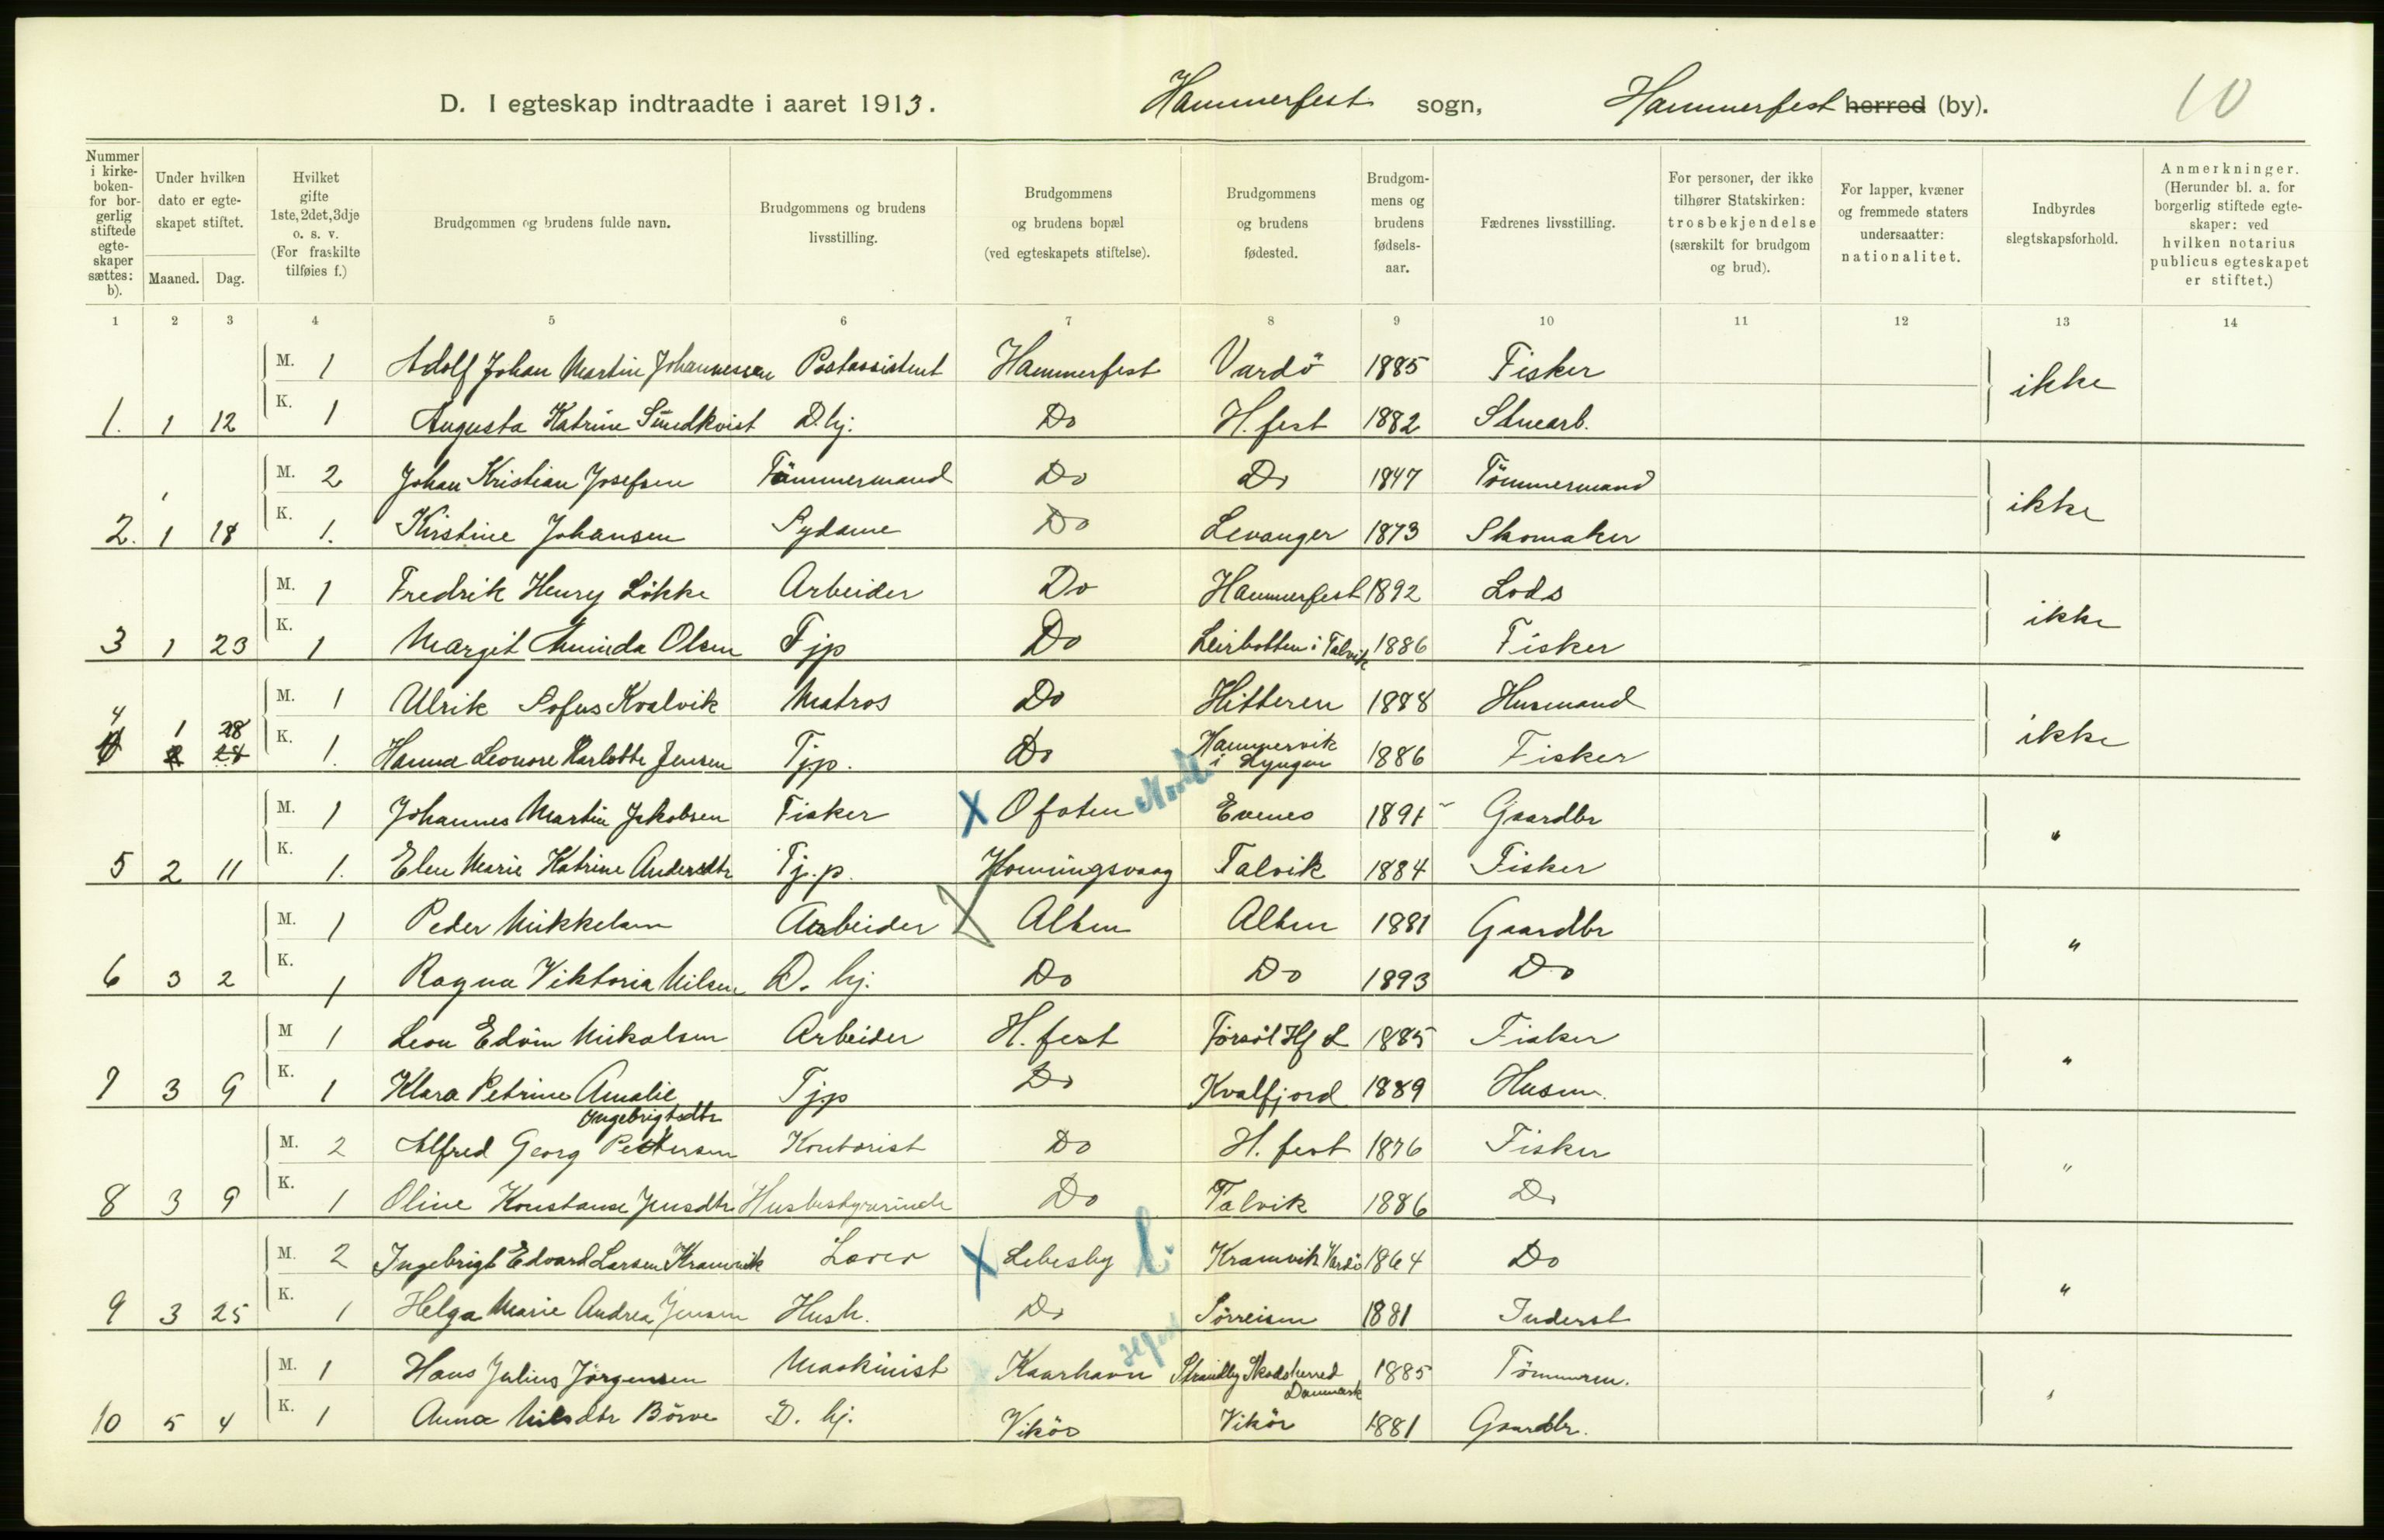 D. I egteskap indtraadte i aaret 1913. Hammerfest sogn, Hammerfest herred (by). 10
Nummer i kirke-boken- for bor-gerlig stiftede egte-skaper sættes: b).
Under hvilken dato er egte-skapet stiftet.
Maaned. Dag.
Hvilket gifte 1ste, 2det, 3dje o. s. v. (For fraskilte tilføies f.)
Brudgommen og brudens fulde navn.
Brudgommens og brudens livsstilling.
Brudgommens og brudens bopæl (ved egteskapets stiftelse).
Brudgommens og brudens fødested.
Brudgom-mens og brudens fødsels-aar.
Fædrenes livsstilling.
For personer, der ikke tilhører Statskirken: trosbekjendelse (særskilt for brudgom og brud).
For lapper, kvæner og fremmede staters undersaatter: nationalitet.
Indbyrdes slegtskapsforhold.
Anmerkninger. (Herunder bl. a. for borgerlig stiftede egte-skaper: ved hvilken notarius publicus egteskapet er stiftet.)
1 2 3 4 5 6 7 8 9 10 11 12 13 14
M. 1 Adolf Johan Martin Johannessen Postassistent Hammerfest Vardö 1885 Fisker ikke
1. 1 12 K. 1 Augusta Katrine Sundkvist D. hj. Do H. fest 1882 Stuearb.
M. 2 Johan Kristian Josefsen Tömmermand Do Do 1847 Tömmermand ikke
2. 1 18 K. 1. Kirstine Johansen Sydame Do Levanger 1873 Skomaker
M. 1 Fredrik Henry Lökke Arbeider Do Hammerfest 1892 Lods ikke
3 1 23 K. 1 Margit Aminda Olsen Tjp Do Leirbotten i Talvik 1886 Fisker
M. 1 Ulrik Sofus Kvalvik Matros Do Hitteren 1888 Husmand ikke
4 1 28 K. 1. Hanna Leonore Karlotte Jensen Tjp. Do Hamnervik i Lyngen 1886 Fisker
M. 1 Johannes Martin Jakobsen Fisker X Ofoten Evenes 1891 Gaardbr "
5 2 11 K. 1. Elen Marie Katrine Andersdtr Tj. p. Honningsvaag Talvik 1884 Fisker
M. 1 Peder Mikkelsen Arbeider X Alten Alten 1881 Gaardbr "
6 3 2 K. 1 Ragna Viktoria Nilsen D. hj. Do Do 1893 Do
M 1 Leon Edvin Mikalsen Arbeider H. fest Forsöl Hf L 1885 Fisker "
7 3 9 K. 1 Klara Petrine Amalie Ingebrigtsdtr Tjp Do Kvalfjord 1889 Husm.
M. 2 Alfred Georg Pettersen Kontorist Do H. fest 1876 Fisker "
8 3 9 K. 1 Oline Konstanse Jensdtr Husbestyrerinde Do Talvik 1886 Do
M. 2 Ingebrigt Edvard Larsen Kramvik Lærer X Lebesby L. Kramvik Vardö 1864 Do "
9 3 25 K. 1 Helga Marie Andrea Jensen Hush. Do Sörreisen 1881 Inderst
M. 1 Hans Julius Jörgensen Maskinist Kaarhavn Strandby Skadsherred Danmark 1885 Tömmerm. "
10 5 4 K. 1 Anna Nilsdtr Börve D. hj. Vikör Vikör 1881 Gaardbr.